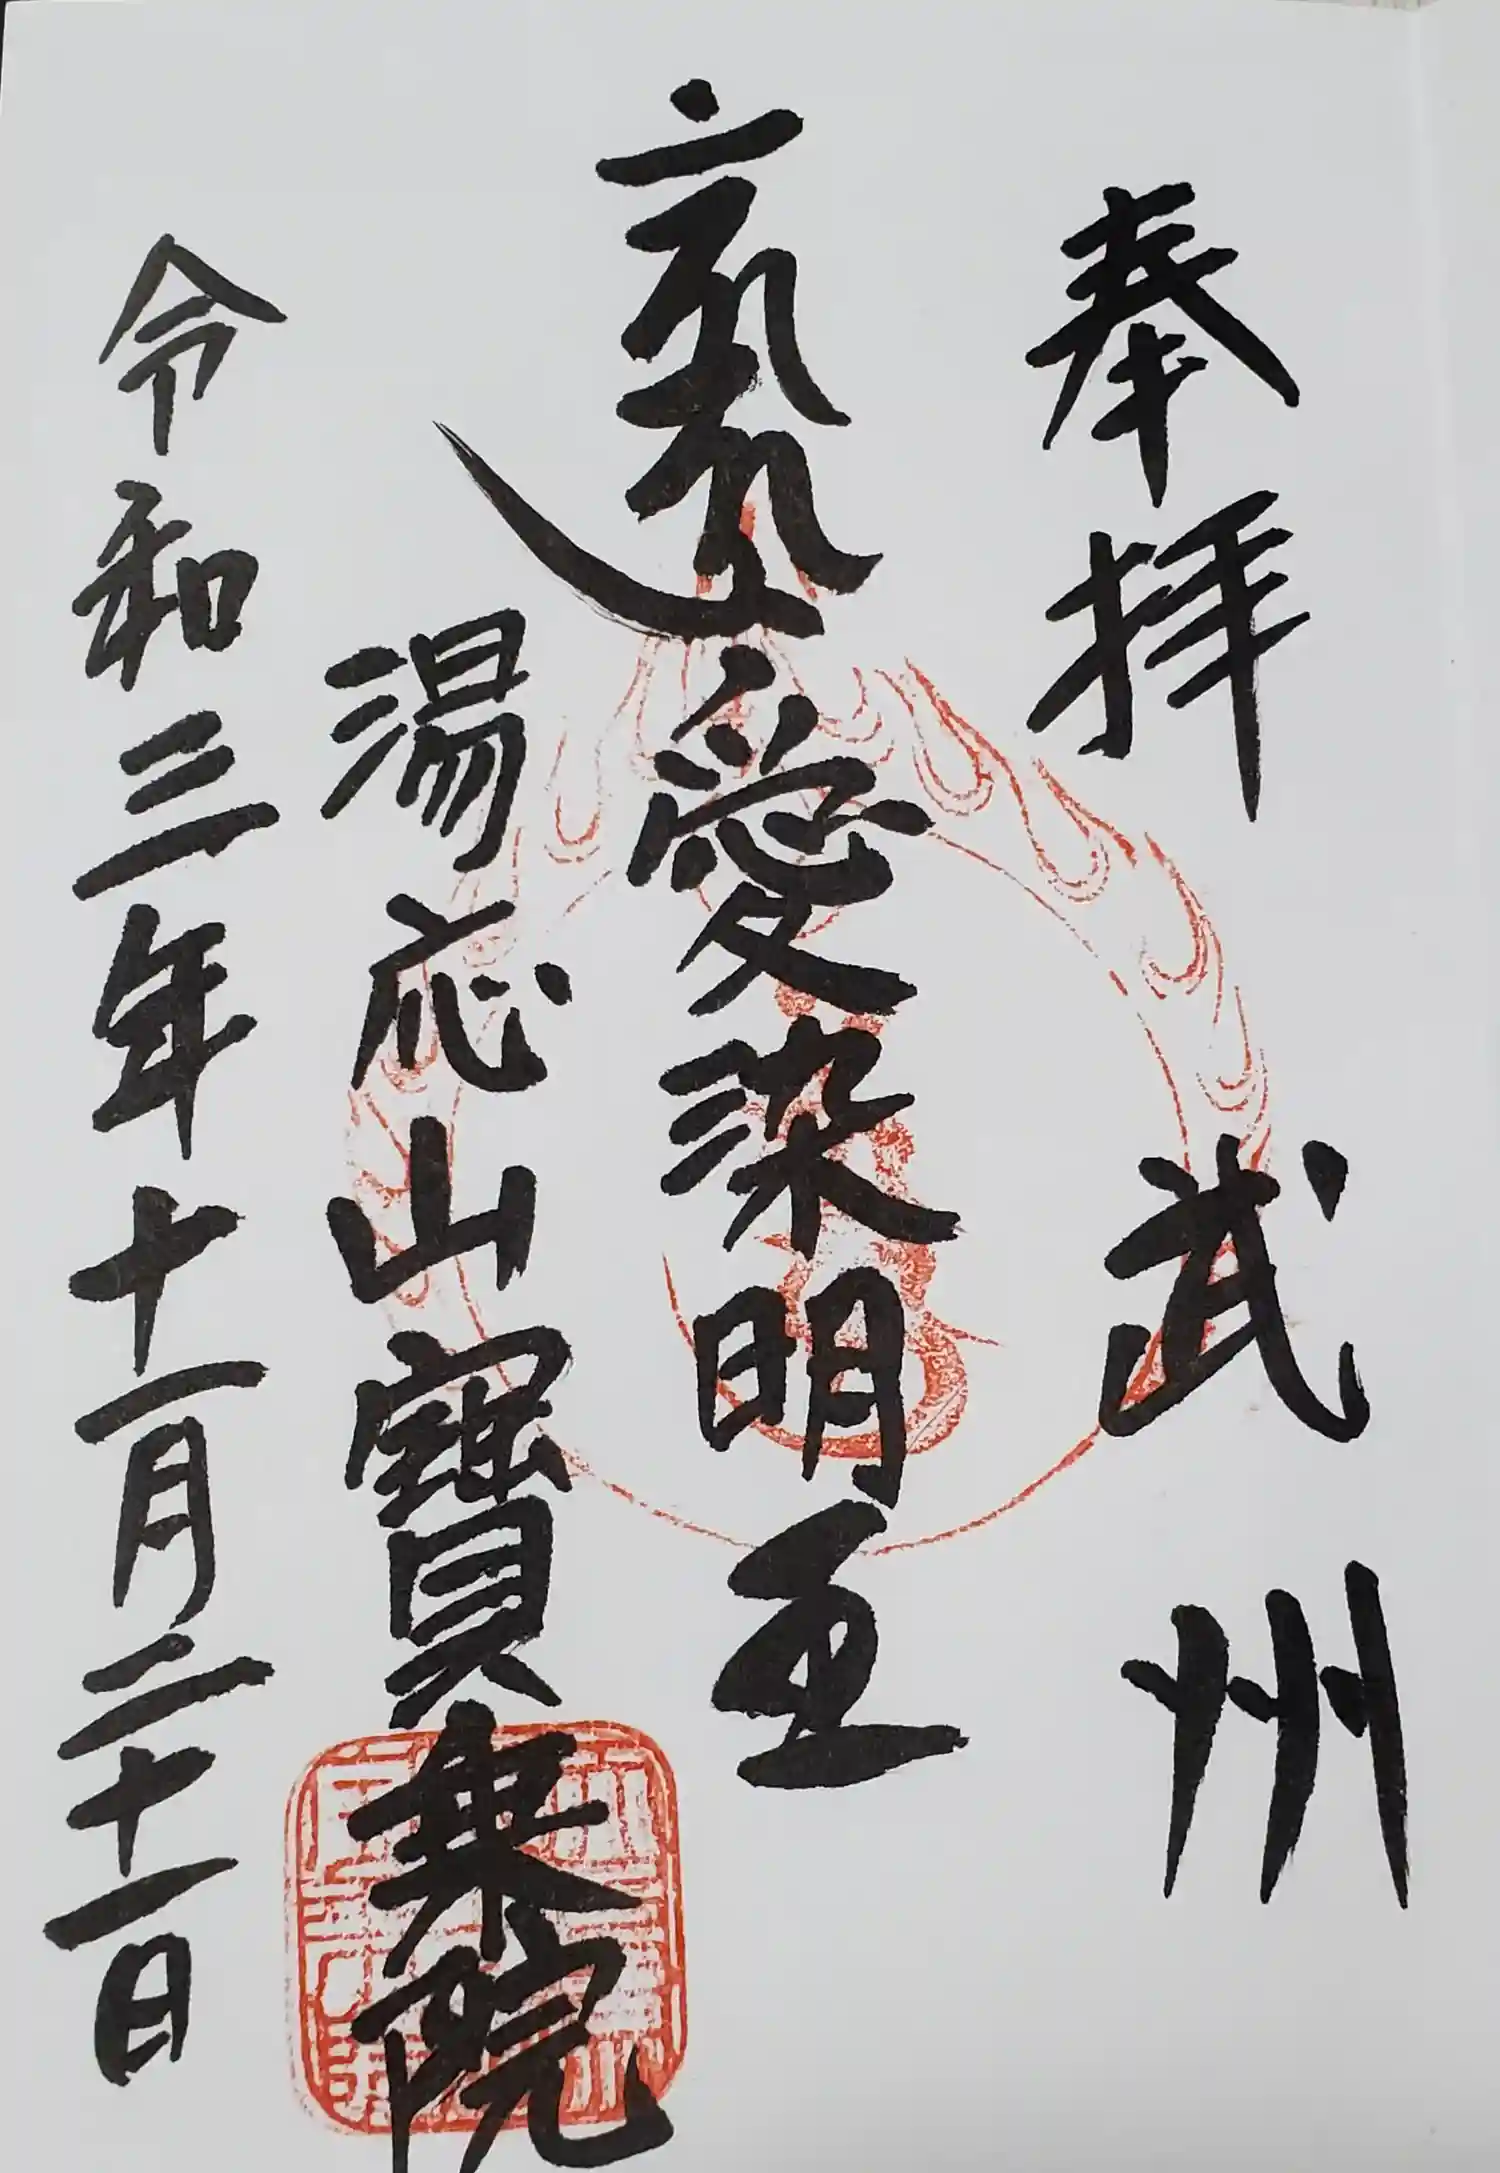 奉拝 武州
愛染明王
湯応山寶乗院
令和三年十一月二十一日